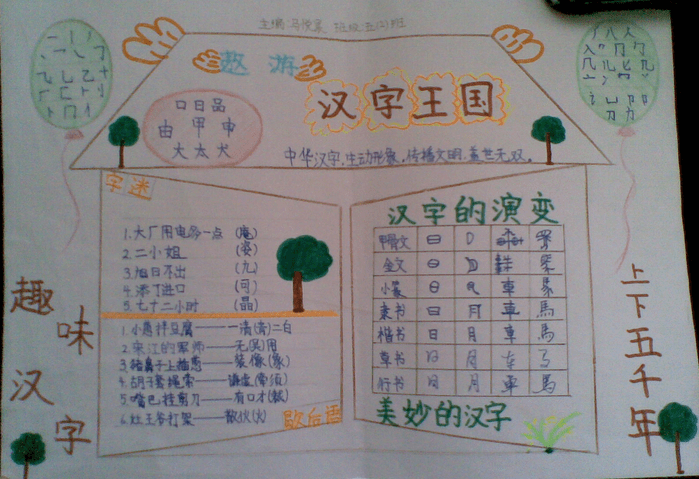 主编:马俊
班级:五(2)班
遨游
汉字王国
口日品
由甲申
大太犬
中华汉字,生动形象,传播文明,盖世无双。
字迷
1.大厂用电多一点 (庵)
2.二小姐 (姿)
3.旭日不出 (九)
4.添丁进口 (可)
5.七十二小时 (晶)
1.小葱拌豆腐——一清(青)二白
2.宋江的军师——无(吴)用
3.猪鼻子上插葱——装像(象)
4.胡子套绳索——谦虚(牵须)
5.嘴巴挂剪刀——有口才(裁)
6.灶王爷打架——散伙(火)
歇后语
汉字的演变
甲骨文
金文
小篆 車
隶书 日 月 車 馬
楷书 日 月 車 馬
草书 日 月
行书 日 月 車 馬
美妙的汉字
趣味汉字
上下五千年